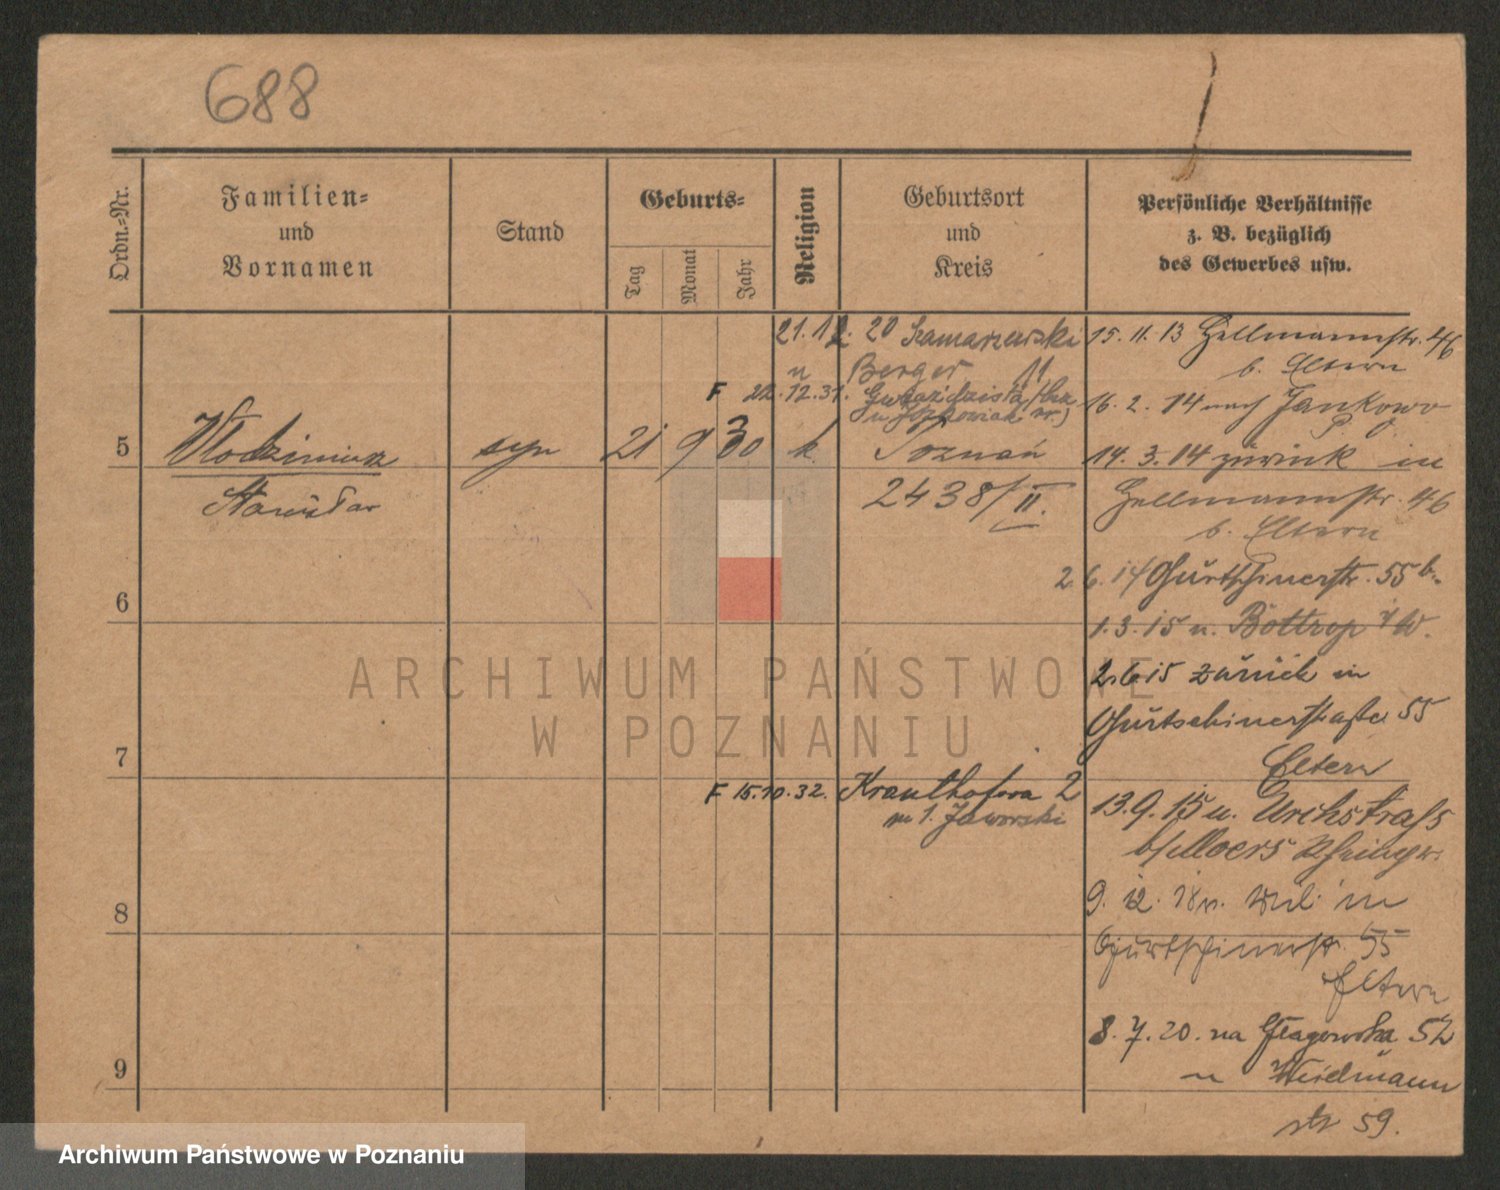 688
Ordn.-Nr.
Familien-
und
Vornamen
Stand
Geburts-
Tag
Monat
Jahr
Religion
Geburtsort
und
Kreis
Persönliche Verhältnisse
z. B. bezüglich
des Gewerbes usw.
21.12. 20 Szamarzewski
u Berger 11
F 22.12.31.
5
Włodzimierz
Stanisław
syn
21 9 30
k.
Poznań
2438/II.
6
7
F 15.10.32. Krauthofera 2
m 1. Jaworski
8
9
15.11.13 Hellmannstr. 46
b. Eltern
16.2.14 nach Jankowo
14.3.14 zurück in
Hellmannstr. 46
b. Eltern
2.6.14 Gurtschinerstr. 55 b.
1.3.15 n. Bottrop i/W.
2.6.15 zurück in
Gurtschinerstraße 55
Eltern
13.9.15 n.
b/Moers
9.12.18 v. Mil. in
Gurtschinerstr. 55
Eltern
8.7.20. na Głogowska 52
u Weidmann
str 59.
ARCHIWUM PAŃSTWOWE
W POZNANIU
Archiwum Państwowe w Poznaniu